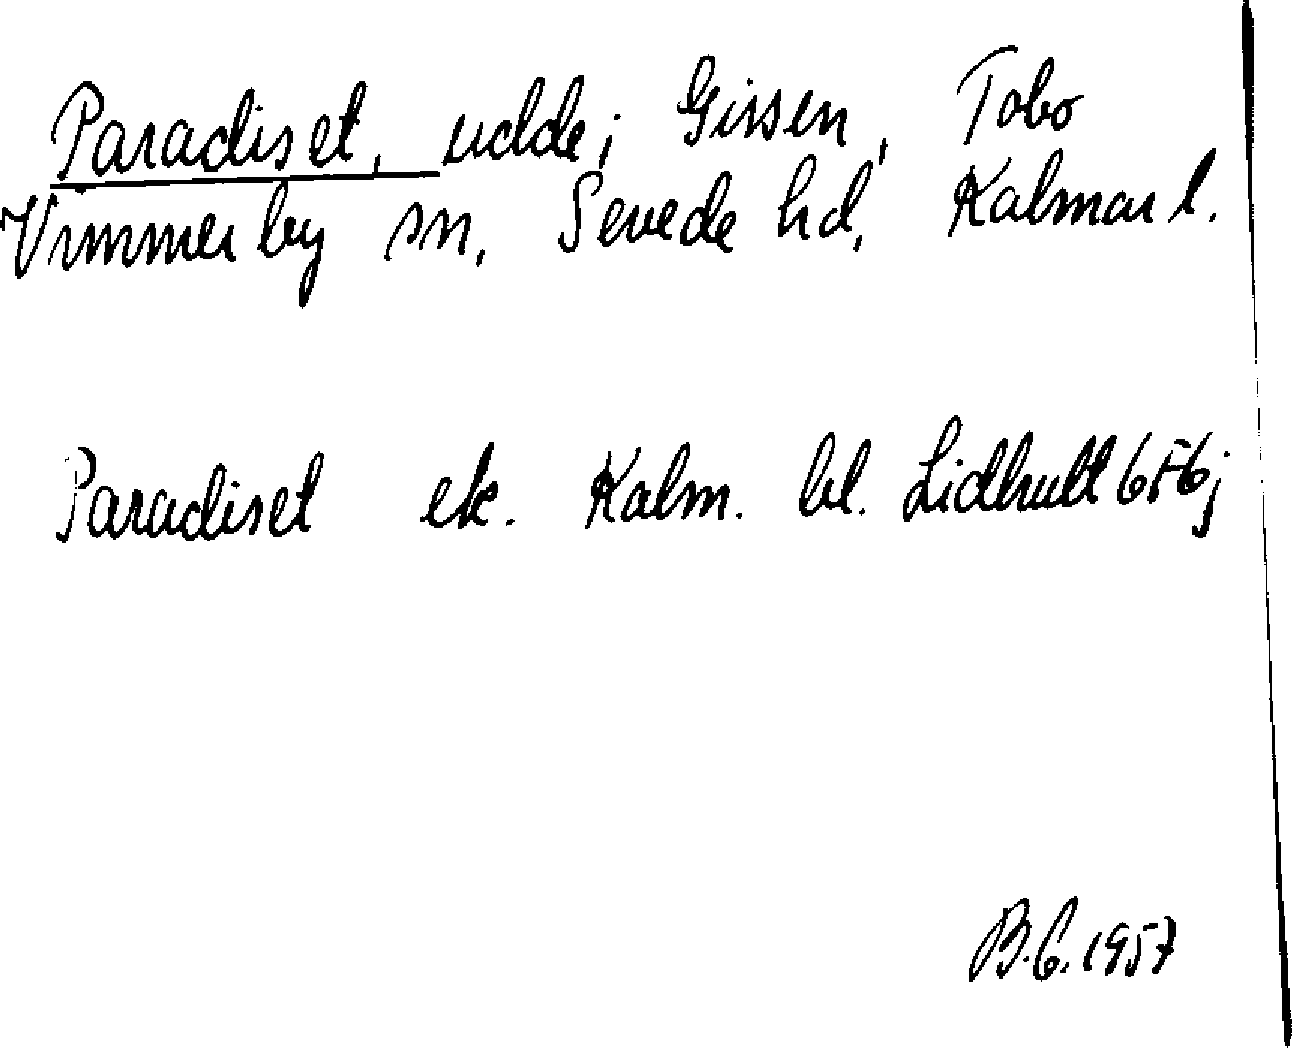 Paradiset, udde i Gissen, Tobo
Vimmerby sn, Sevede hd, Kalmar l.
Paradiset ek. Kalm. bl. Lidhult 6f6j
B.C. 1957